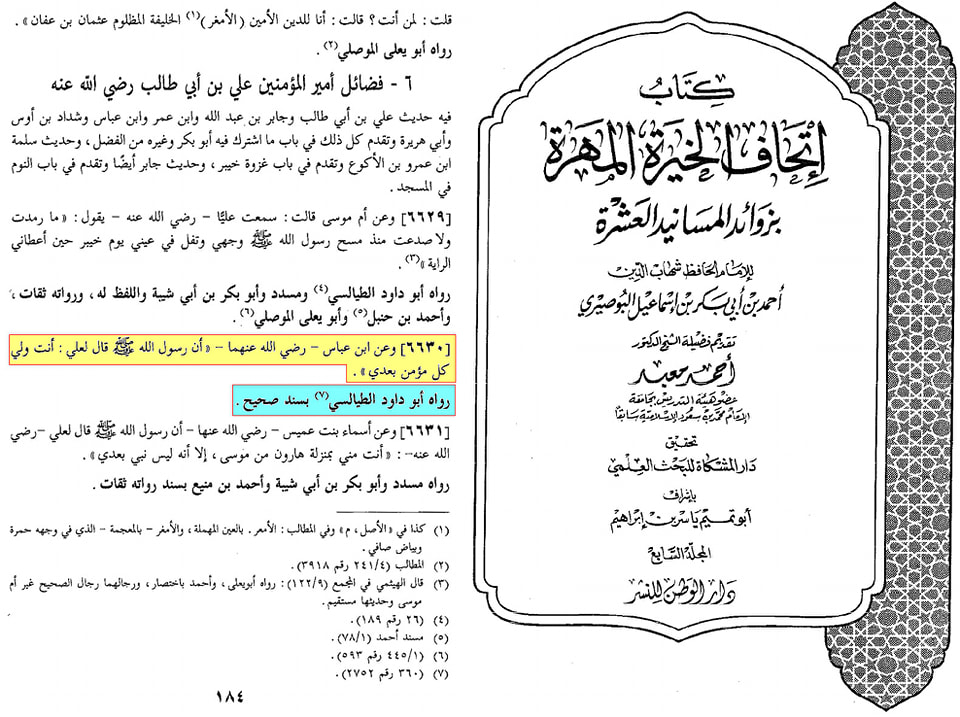 قلت : لمن أنت ؟ قالت : أنا للدين الأمين (الأمغر)(١) الخليفة المظلوم عثمان بن عفان» .
رواه أبو يعلى الموصلي(٢) .
٦ - فضائل أمير المؤمنين علي بن أبي طالب رضي الله عنه
فيه حديث علي بن أبي طالب وجابر بن عبد الله وابن عمر وابن عباس وشداد بن أوس
وأبي هريرة وتقدم كل ذلك في باب ما اشترك فيه أبو بكر وغيره من الفضل، وحديث سلمة
ابن عمرو بن الأكوع وتقدم في باب غزوة خيبر ، وحديث جابر أيضًا وتقدم في باب النوم
في المسجد .
[٦٦٢٩] وعن أم موسى قالت : سمعت عليًّا – رضي الله عنه – يقول : «ما رمدت
ولا صدعت منذ مسح رسول الله ﷺ وجهي وتفل في عيني يوم خيبر حين أعطاني
الراية»(٣) .
رواه أبو داود الطيالسي(٤) ومسدد وأبو بكر بن أبي شيبة واللفظ له ، ورواته ثقات ،
وأحمد بن حنبل(٥) وأبو يعلى الموصلي(٦) .
[٦٦٣٠] وعن ابن عباس – رضي الله عنهما – «أن رسول الله ﷺ قال لعلي : أنت ولي
كل مؤمن بعدي» .
رواه أبو داود الطيالسي(٧) بسند صحيح .
[٦٦٣١] وعن أسماء بنت عميس – رضي الله عنها – أن رسول الله ﷺ قال لعلي –رضي
الله عنه– : «أنت مني بمنزلة هارون من موسى ، إلا أنه ليس نبي بعدي» .
رواه مسدد وأبو بكر بن أبي شيبة وأحمد بن منيع بسند رواته ثقات .
(١) كذا في «الأصل ، م» وفي المطالب : الأمعر . بالعين المهملة ، والأمغر – بالمعجمة – الذي في وجهه حمرة
وبياض صافي .
(٢) المطالب (٢٤١/٤ رقم ٣٩١٨) .
(٣) قال الهيثمي في المجمع (١٢٢/٩) : رواه أبويعلى ، وأحمد باختصار ، ورجالهما رجال الصحيح غير أم
موسى وحديثها مستقيم .
(٤) (٢٦ رقم ١٨٩) .
(٥) مسند أحمد (٧٨/١) .
(٦) (٤٤٥/١ رقم ٥٩٣) .
(٧) (٣٦٠ رقم ٢٧٥٢) .
١٨٤
كتاب
إتحاف الخيرة المهرة
بزوائد المسانيد العشرة
للإمام الحافظ شهاب الدين
أحمد بن أبي بكر بن إسماعيل البوصيري
تقديم فضيلة الشيخ الدكتور
أحمد معبد
عضو هيئة التدريس بجامعة
الإمام محمد بن سعود الإسلامية سابقا
تحقيق
دار المشكاة للبحث العلمي
بإشراف
أبو تميم ياسر بن إبراهيم
المجلد السابع
دار الوطن للنشر